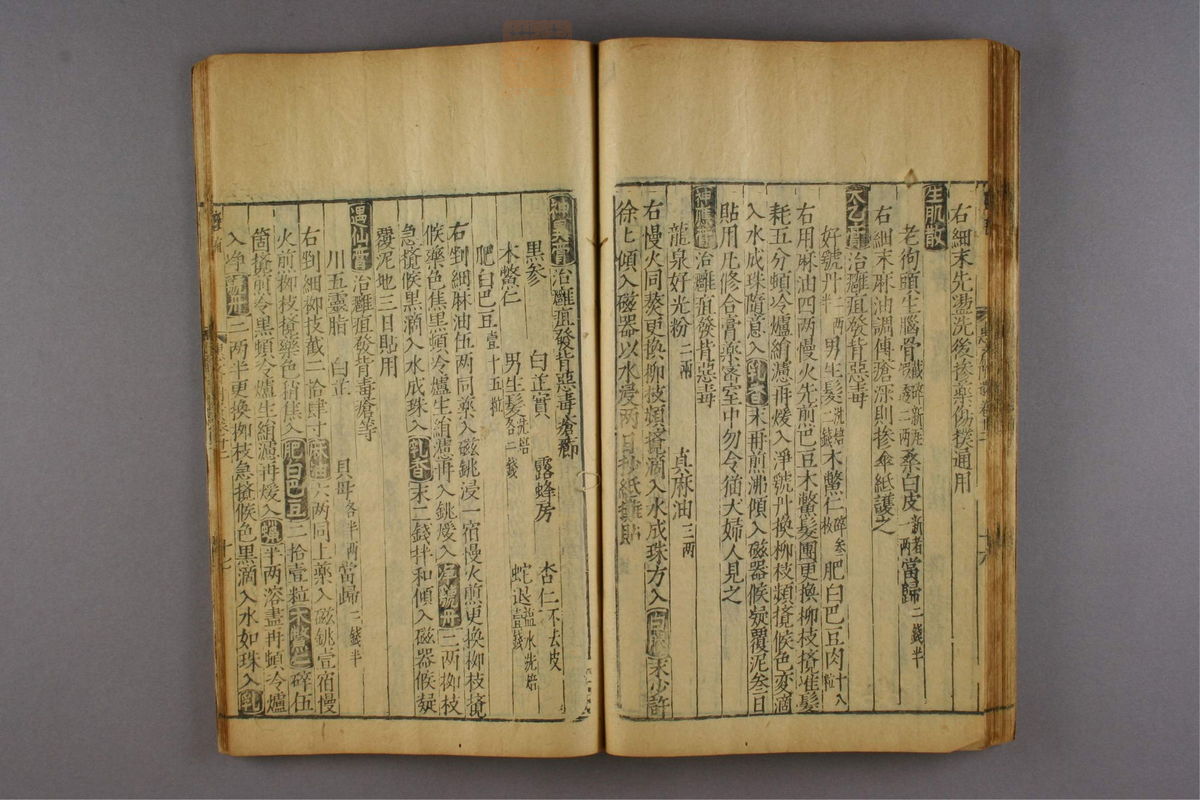 右細末先盪洗後摻藥傷撲通用
生肌散
老狗頭生腦骨截碎新瓦 二兩桑白皮新者一兩當歸二錢半
右細末麻油調傅瘡深則摻傘紙護之
太乙膏治癰疽發背惡毒
好號丹二兩半男生髮洗焙二錢木鱉仁碎叁枚肥白巴豆肉十八粒
右用麻油四兩慢火先煎巴豆木鱉髮團更換柳枝攪堆髮
耗五分頓冷爐綃濾再煖入淨號丹換柳枝頻攪候色变滴
入水成珠隨意入乳香末再煎沸傾入磁器候凝覆泥叁日
貼用凡修合膏藥密室中勿令猫犬婦人見之
神應膏治癰疽發背惡毒
龍泉好光粉二兩 真麻油三兩
右慢火同熬更換柳枝頻攪滴入水成珠方入白膠末少許
徐徐傾入磁器以水浸兩日抄紙攤貼
神異膏治癰疽發背惡毒瘡癤
黑參 白芷實 露蜂房 杏仁不去皮
木鱉仁 男生髮洗焙各二錢 蛇退鹽水洗焙壹錢
肥白巴豆壹十五粒
右剉細麻油伍兩同藥入磁銚浸一宿慢火煎更换柳枝攪
候藥色焦黑頓冷爐生綃濾再入銚煖入淨號丹二兩柳枝
急攪候黑滴入水成珠入乳香末二錢拌和傾入磁器候凝
覆泥地三日貼用
遇仙膏治癰疽發背毒瘡等
川五靈脂 白芷 貝母各半兩當歸二錢半
右剉細柳枝截二拾肆寸麻油六兩同上藥入磁銚壹宿慢
火前柳枝攪藥色稍焦入肥白巴豆二拾壹粒木鱉仁碎伍
箇攪煎令黑頓冷爐生綃濾再煖入蠟半兩溶盡再頓冷爐
入净號丹二兩半更換柳枝急攪候色黑滴入水如珠入乳